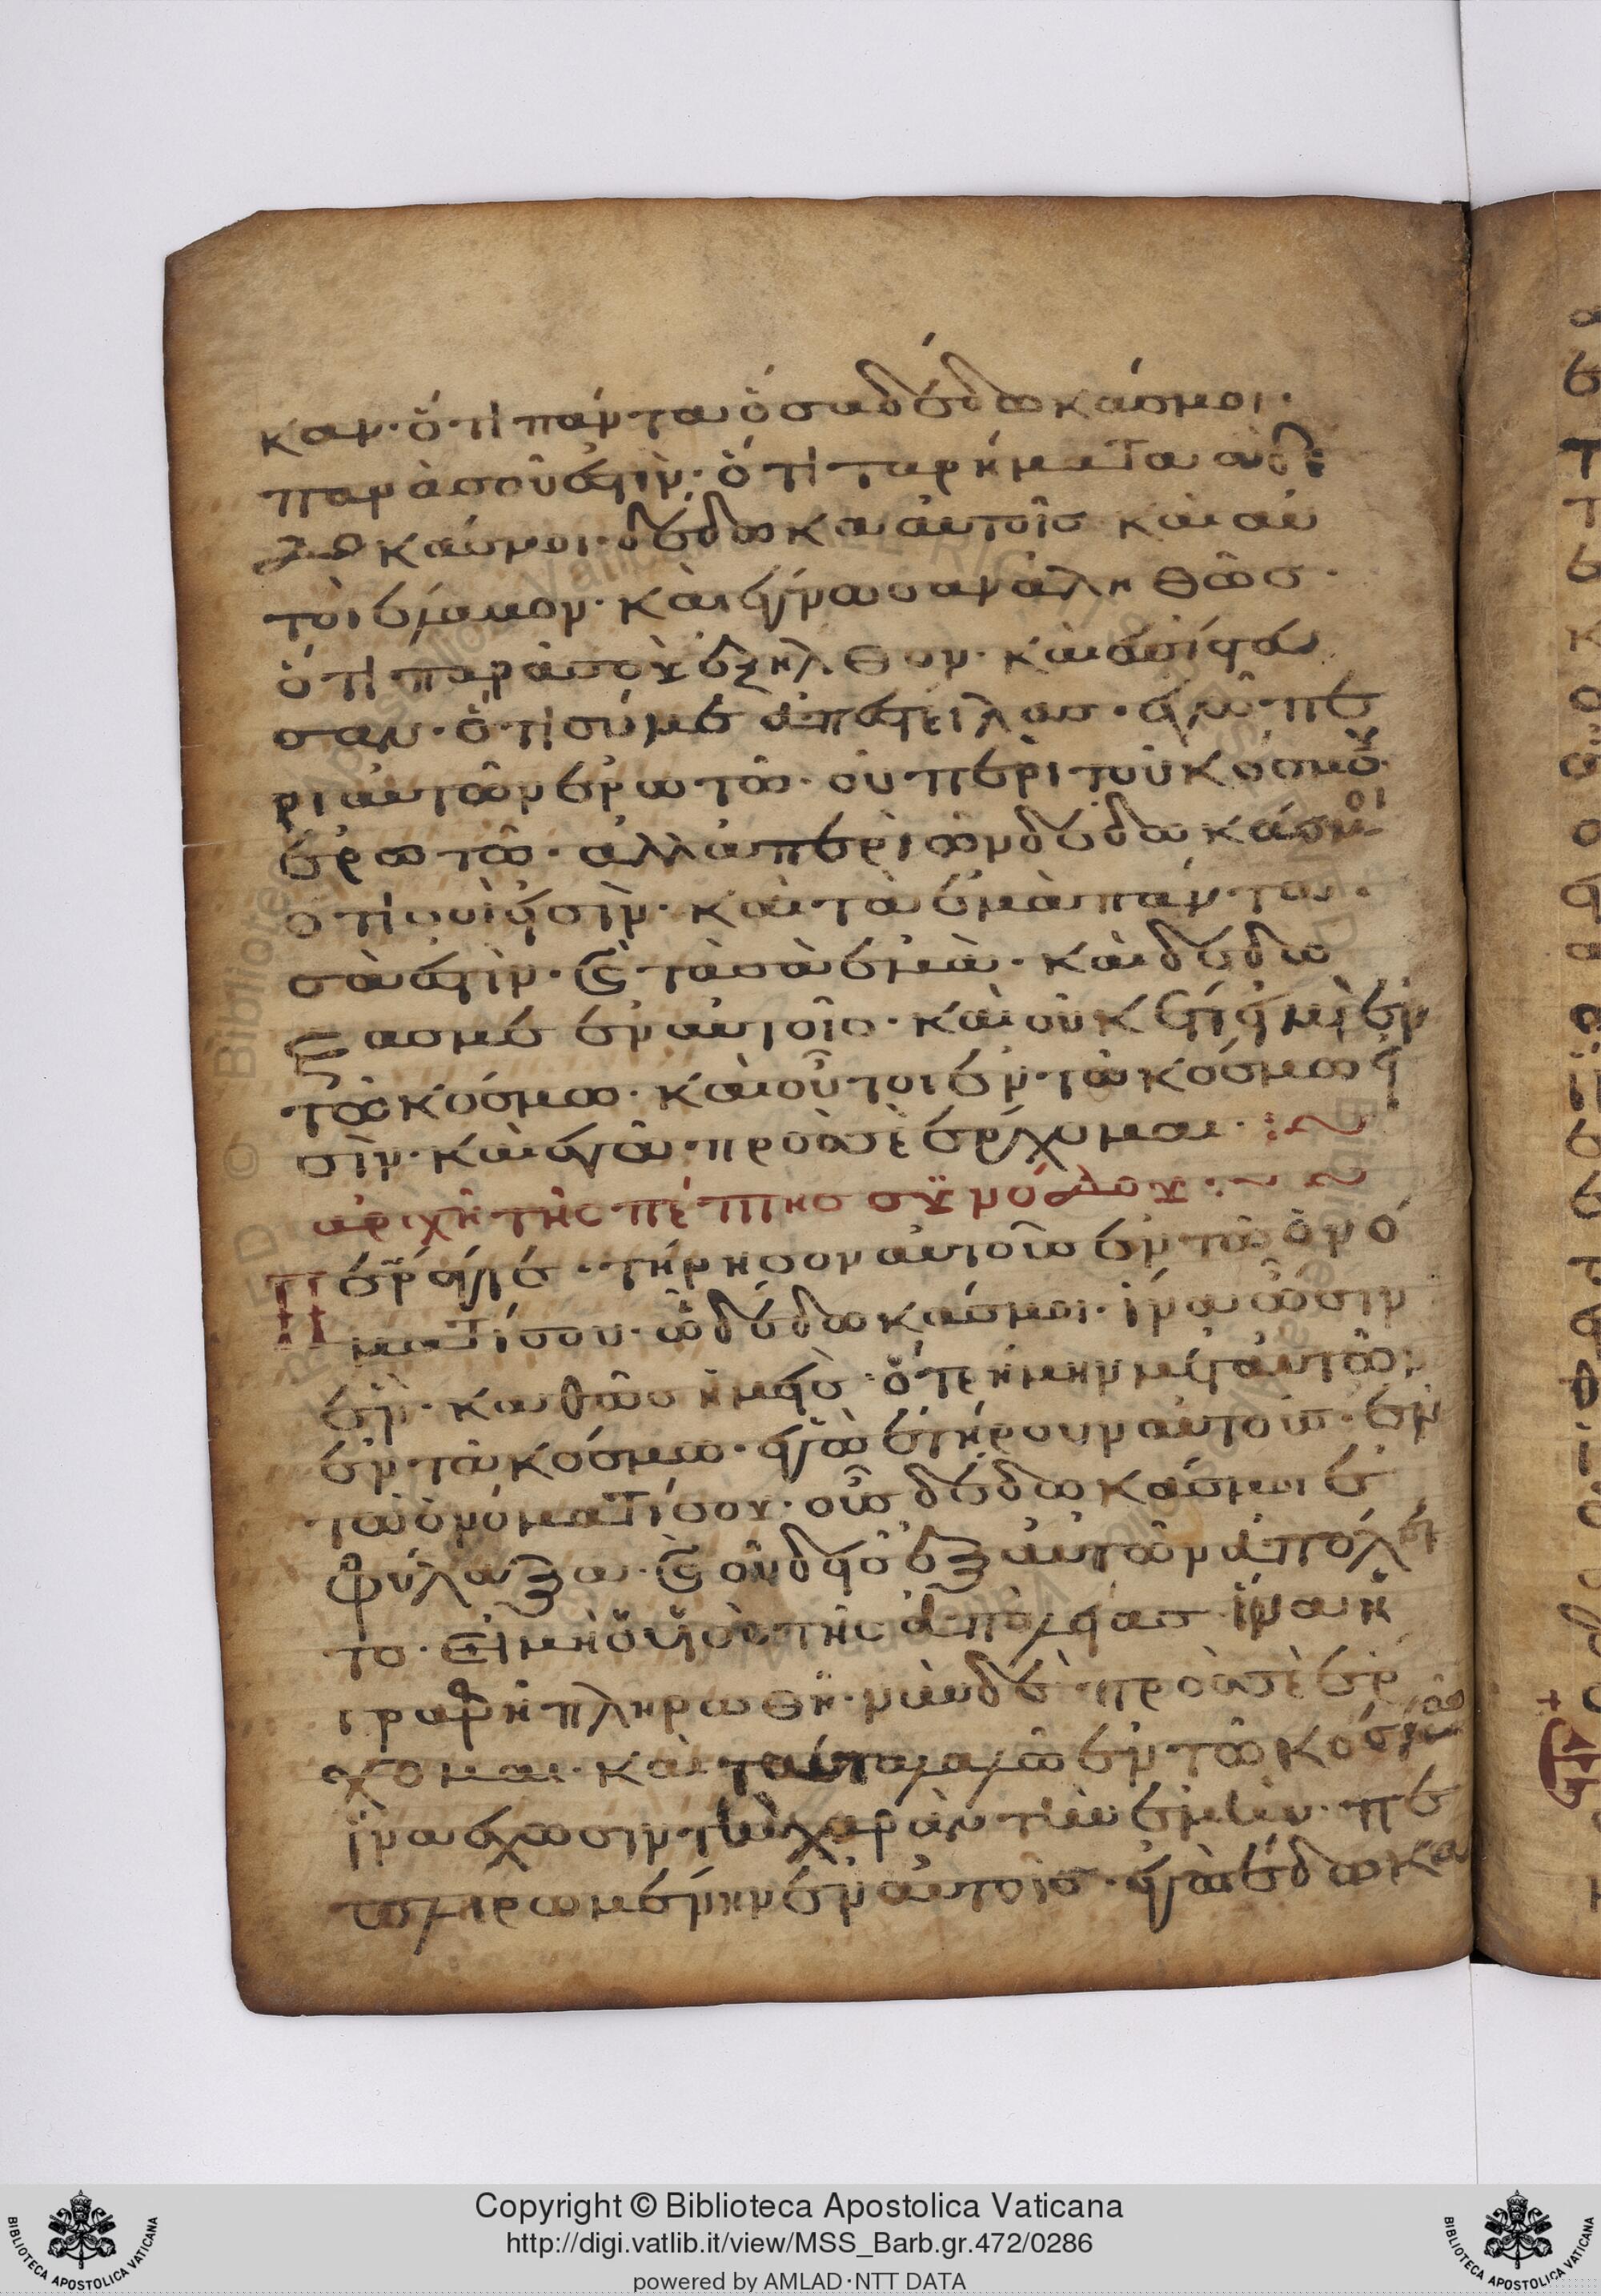 καν· ὅτι πάντα ὅσα δέδωκάσ μοι·
παρὰ σοῦ ἐστὶν· ὅτι τα ρήματα ἃ δέ
δωκάσ μοι· δέδωκα αὐτοῖσ καὶ αυ
τοὶ ἔλαβον· καὶ ἔγνωσαν ἀληθῶσ·
ὅτι παρὰ σοῦ ἐξῆλθον· καὶ ἐπίστευ
σαν· ὅτι σύ με ἀπέστειλασ· ἐγὼ πε
ρι αὐτῶν ἐρωτῶ· οὐ περὶ τοῦ κόσμου
ἐρωτῶ· ἀλλὰ περὶ ὧν δέδωκάσ μοι
ὅτι σοί εἰσὶν· καὶ τὰ ἐμὰ πάντα·
σὰ ἐστὶν· καὶ τὰ σὰ ἐμὰ· καὶ δεδό
ξασμε ἐν αὐτοῖσ· καὶ οὐκ ἔτι εἰμὶ ἐν
τῶ κόσμω· καὶ οὗτοι ἐν τῶ κόσμω εἰ
σὶν· καὶ ἐγὼ πρὸσ σὲ ἔρχομαι·
ἀρχὴ τῆσ πέμπτησ συνόδου
Περ ἅγιε· τήρησον αὐτοὺσ ἐν τῶ ὀνό
ματί σου· ὧ δέδωκάσ μοι· ἵνα ὦσιν
ἓν· καθὼσ ἡμεῖσ· ὅτε ἤμην μετ αὐτῶν
ἐν τῶ κόσμω· ἐγὼ ἐτήρουν αὐτούσ· ἐν
τῶ ὀνόματί σου· οὓσ δέδωκάσ μοι ἐ
φύλαξα· καὶ οὐδεὶσ ἐξ αὐτῶν ἀπόλε
το· εἰ μὴ ὁ υἱὸσ τῆσ ἀπωλείασ ἵνα ἡ
γραφὴ πληρωθῆ· νῦν δὲ πρὸσ σὲ ἔρ
χομαι· καὶ ταῦτα λαλῶ ἐν τῶ κόσμω
ἵνα ἔχωσιν τὴν χαρὰν τὴν ἐμὴν· πε
πληρωμένην ἐν αὐτοῖσ· ἐγὼ ἔδωκα
Copyright © Biblioteca Apostolica Vaticana
http://digi.vatlib.it/view/MSS_Barb.gr.472/0286
powered by AMLAD·NTT DATA